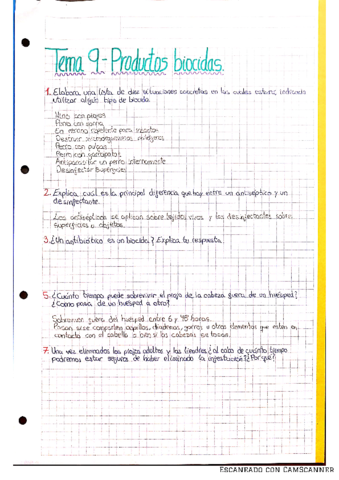 Tema 9-Productos biocidas.
1. Elabora una lista de diez situaciones concretas en las cuales estaría indicado
utilizar algún tipo de biocida.
Niño con piojos
Perro con sarna
En verano repelente para insectos
Destruir microorganismos patógenos
Perro con pulgas
Antiparásitos para un perro internamente
Desinfectar superficies
2. Explica cuál es la principal diferencia que hay entre un antiséptico y un
desinfectante.
Los antisépticos se aplican sobre tejidos vivos y los desinfectantes sobre
superficies u objetos.
3. ¿Un antibiótico es un biocida? Explica tu respuesta.
5. ¿Cuánto tiempo puede sobrevivir el piojo de la cabeza fuera de un huésped?
¿Cómo pasa de un huésped a otro?
Sobreviven fuera del huésped entre 6 y 48 horas.
Pasan si se comparten cepillos, diademas, gorros u otros elementos que estén en
contacto con el cabello o bien si las cabezas se tocan.
7. Una vez eliminados los piojos adultos y las liendres ¿al cabo de cuánto tiempo
podremos estar seguros de haber eliminado la infestación? ¿Por qué?
ESCANEADO CON CAMSCANNER